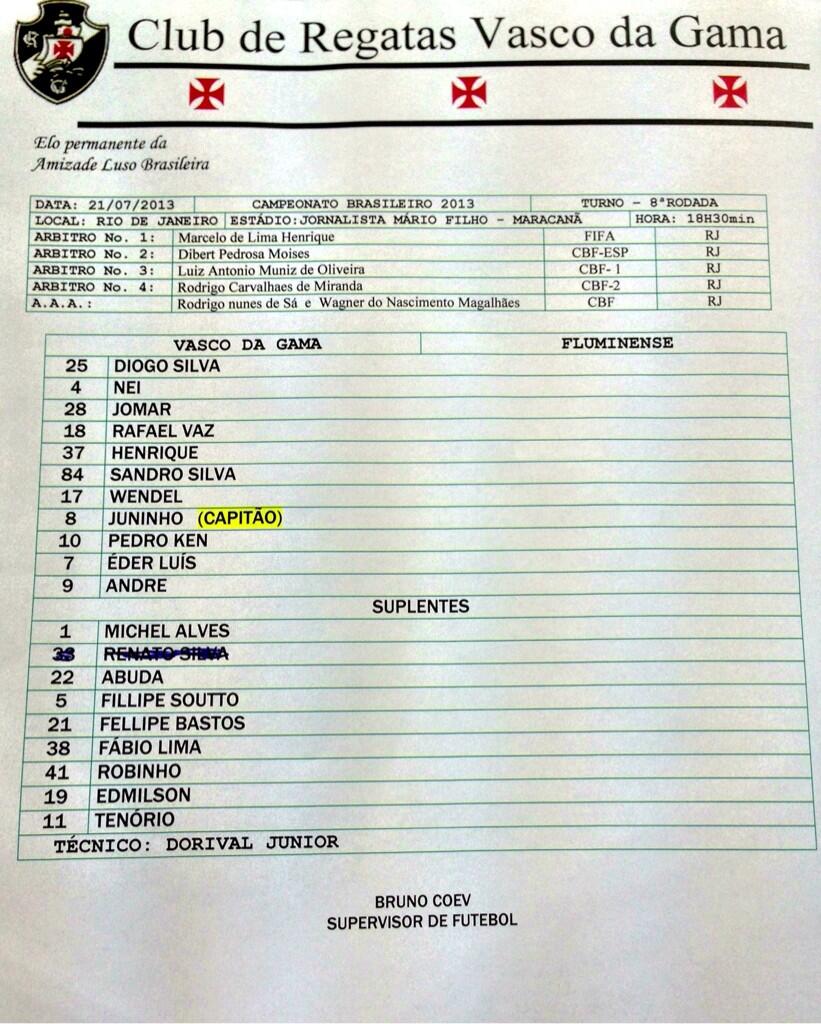 Club de Regatas Vasco da Gama
Elo permanente da
Amizade Luso Brasileira
DATA: 21/07/2013 CAMPEONATO BRASILEIRO 2013 TURNO - 8ªRODADA
LOCAL: RIO DE JANEIRO ESTÁDIO:JORNALISTA MÁRIO FILHO - MARACANÃ HORA: 18H30min
ARBITRO No. 1: Marcelo de Lima Henrique FIFA RJ
ARBITRO No. 2: Dibert Pedrosa Moises CBF-ESP RJ
ARBITRO No. 3: Luiz Antonio Muniz de Oliveira CBF- 1 RJ
ARBITRO No. 4: Rodrigo Carvalhaes de Miranda CBF-2 RJ
A.A.A.: Rodrigo nunes de Sá e Wagner do Nascimento Magalhães CBF RJ
VASCO DA GAMA FLUMINENSE
25 DIOGO SILVA
4 NEI
28 JOMAR
18 RAFAEL VAZ
37 HENRIQUE
84 SANDRO SILVA
17 WENDEL
8 JUNINHO (CAPITÃO)
10 PEDRO KEN
7 ÉDER LUÍS
9 ANDRE
SUPLENTES
1 MICHEL ALVES
33 RENATO SILVA
22 ABUDA
5 FILLIPE SOUTTO
21 FELLIPE BASTOS
38 FÁBIO LIMA
41 ROBINHO
19 EDMILSON
11 TENÓRIO
TÉCNICO: DORIVAL JUNIOR
BRUNO COEV
SUPERVISOR DE FUTEBOL